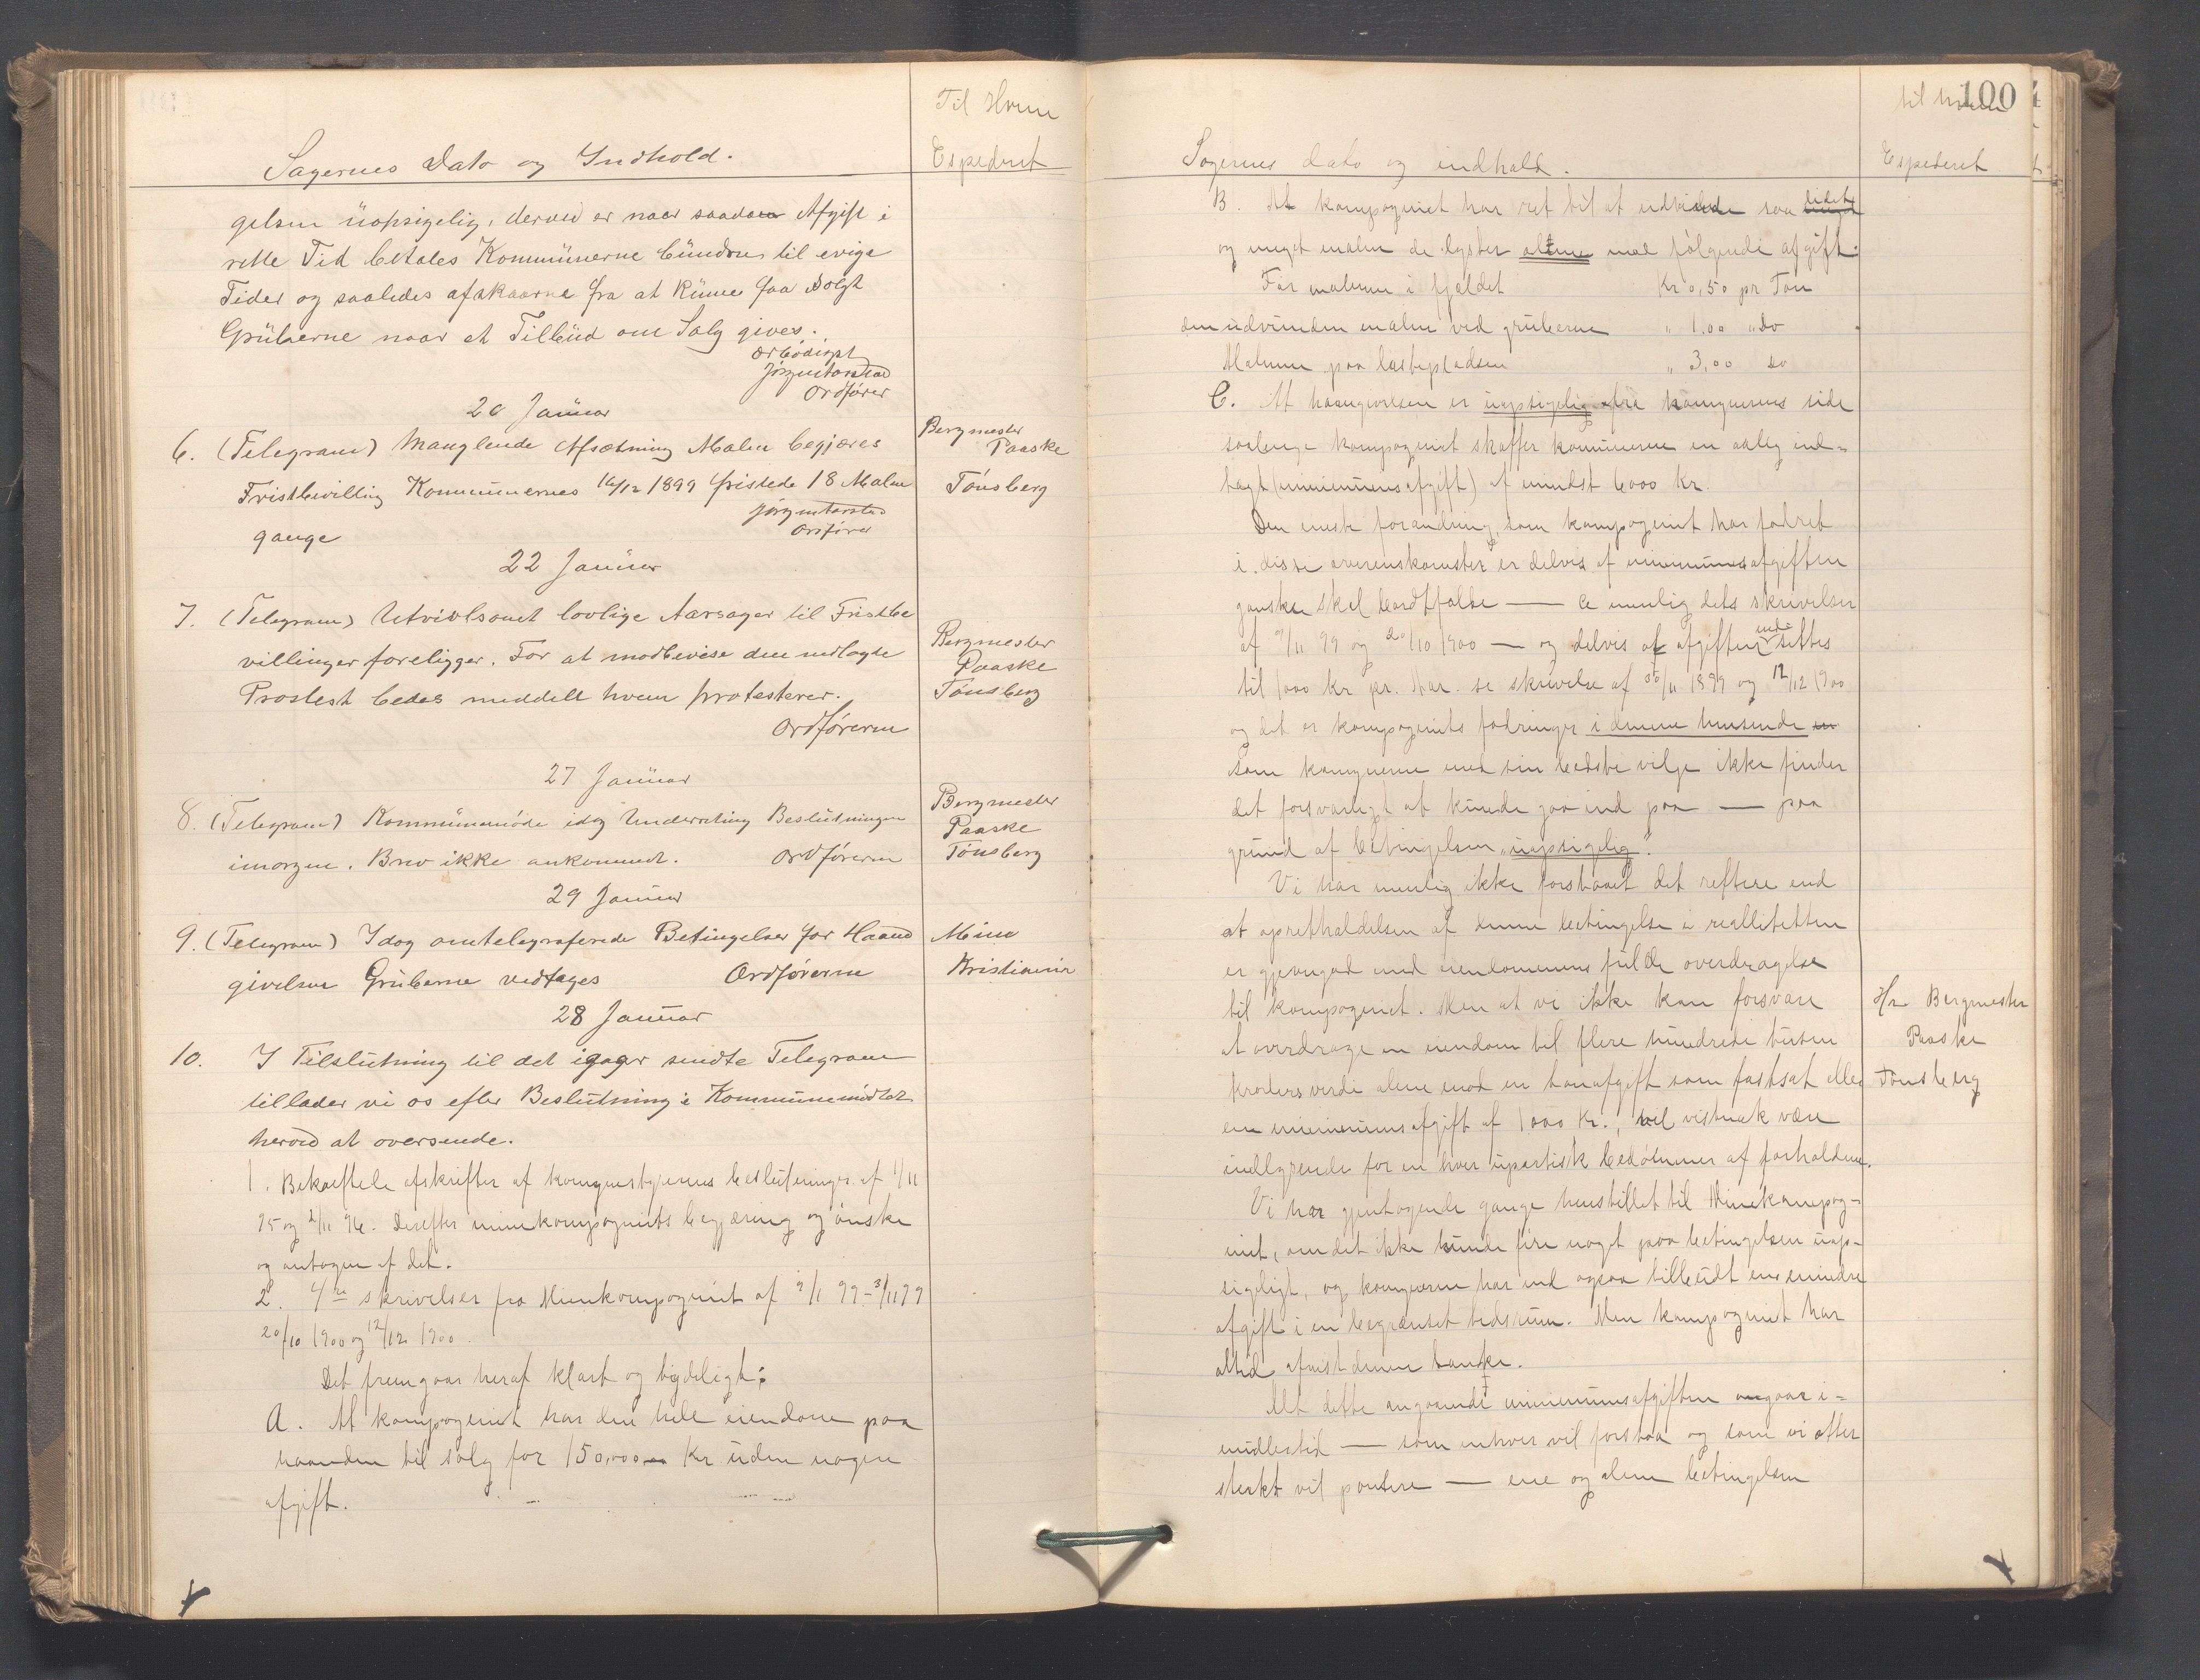 Til Hvem
Sagernes Dato og Indhold.
Expederet
gelsen uopsigelig, derved er naar saadan Afgift i
rette Tid betales Kommunerne bundne til evige
Tider og saaledes afskaarne fra at kunne faa solgt
Gruberne naar et Tilbud om Salg gives.
Ærbødigst
Ordfører
20 Januar
6. (Telegram) Manglende Afsætning Malm begjæres
Bergmester
Paaske
Fristbevilling Kommunernes 16/12 1899 fristede 18 Malm
Tønsberg
gange
Ordfører
22 Januar
7. (Telegram) Utvivlsomt lovlige Aarsager til Fristbe
villinger foreligger. For at modbevise den nedlagte
Bergmester
Paaske
Protest bedes meddelt hvem protesterer.
Tønsberg
Ordføreren
27 Januar
8. (Telegram) Kommunemøde idag Underretning Beslutningen
Bergmester
Paaske
imorgen. Brev ikke ankommet. Ordføreren
Tønsberg
29 Januar
9. (Telegram) Idag omtelegraferede Betingelser for Haand
Mine
givelsen Gruberne vedtages Ordføreren
Kristiania
28 Januar
10. I Tilslutning til det igaar sendte Telegram
tillader vi os efter Beslutning i Kommunemødet
herved at oversende.
1. Bekræftede afskrifter af komunestyrernes beslutninger af 1/11
95 og 2/11 96. Derefter minekompagniets begjæring og ønske
og antagen af det.
2. 4re skrivelser fra Minekompagniet af 9/1 99 - 3/11 99
20/10 1900 og 12/12 1900.
Det fremgaar heraf klart og tydeligt:
A. At kompagniet har den hele eiendom paa
haanden til salg for 150,000 Kr uden nogen
afgift.
til hvem 100
Sagernes dato og indhold.
Expederet
B. At kompagniet har ret til at udvinde saa lidet
og meget malm de lyster alene mod følgende afgift:
For malmen i fjeldet Kr 0,50 pr Ton
den udvunden malm ved gruberne " 1.00 " do
Malmen paa lastepladsen " 3,00 do
C. At haangivelsen er uopsigelig fra komunernes side
saalenge kompagniet skaffer komunerne en aarlig ind-
tægt (minimumsafgift) af mindst 6000 Kr.
Den eneste forandring, som kompagniet har fodret
i disse overenskomster er delvis at minimumsafgiften
ganske skal bortfalde — se nemlig dets skrivelser
af 9/11 99 og 20/10 1900 — og delvis at afgiften ned-settes
til 1000 Kr pr. Aar. se skrivelse af 30/11 1899 og 12/12 1900
og det er kompagniets fodringer i denne henseende
som komunerne med sin bedste vilje ikke finder
det forsvarligt at kunde gaa ind paa — paa
grund af betingelsen "uopsigelig".
Vi har nemlig ikke forstaaet det rettere end
at opretholdelsen af denne betingelse i reallitetten
er gjevngod med eiendommens fulde overdragelse
til kompagniet. Men at vi ikke kan forsvare
Hr. Bergmester
at overdrage en eiendom til flere hundrede tusen
Paaske
kroners verdi alene mod en tonafgift som fastsat eller
Tønsberg
en minimumsafgift af 1000 Kr., vil vistnok være
indlysende for en hver upartisk bedømmer af forholdene.
Vi har gjentagende gange henstillet til Minekompag-
niet, om det ikke kunde fire noget paa betingelsen uop-
sigeligt, og komunerne har ind ogsaa tilbudt en mindre
afgift i en begrænset tidsrum. Men kompagniet har
altid afvist denne tanke.
Alt dette angaaende minimumsafgiften angaar i-
midlertid — som enhver vil forstaa og som vi atter
sterkt vil pointere — ene og alene betingelsen